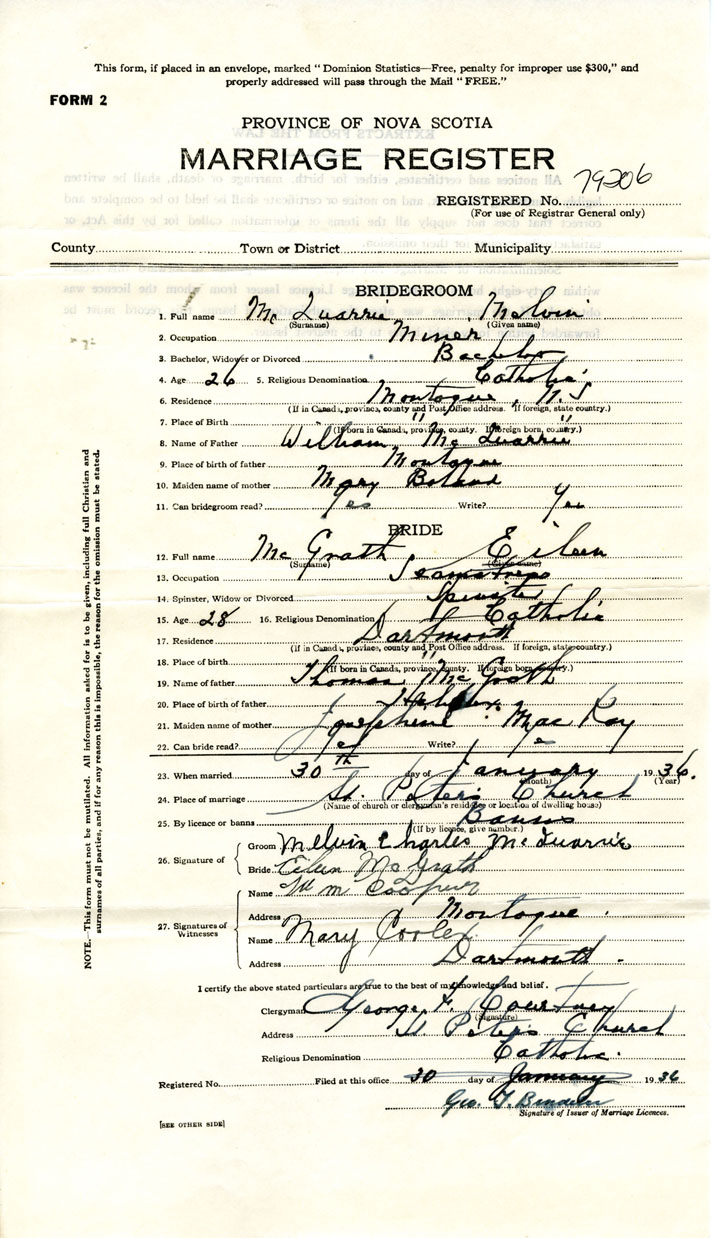 This form, if placed in an envelope, marked "Dominion Statistics—Free, penalty for improper use $300," and
properly addressed will pass through the Mail "FREE."
FORM 2
PROVINCE OF NOVA SCOTIA
MARRIAGE REGISTER
79206
REGISTERED No.
(For use of Registrar General only)
County Town or District Municipality
BRIDEGROOM
1. Full name Mc Quarrie Melvin
(Surname) (Given name)
2. Occupation Miner
3. Bachelor, Widower or Divorced Bachelor
4. Age 26 5. Religious Denomination Catholic
6. Residence Montague, N.S
(If in Canada, province, county and Post Office address. If foreign, state country.)
7. Place of Birth " "
(If born in Canada, province, county. If foreign born, country.)
8. Name of Father William Mc Quarrie
9. Place of birth of father Montague
10. Maiden name of mother Mary Boland
11. Can bridegroom read? Yes Write? Yes
BRIDE
12. Full name Mc Grath Eileen
(Surname) (Given name)
13. Occupation Seamstress
14. Spinster, Widow or Divorced Spinster
15. Age 28 16. Religious Denomination Catholic
17. Residence Dartmouth
(If in Canada, province, county and Post Office address. If foreign, state country.)
18. Place of birth "
(If born in Canada, province, county. If foreign born, country.)
19. Name of father Thomas Mc Grath
20. Place of birth of father Halifax
21. Maiden name of mother Josephine Mac Kay
22. Can bride read? Yes Write? Yes
23. When married 30th day of January 1936.
(Month) (Year)
24. Place of marriage St. Peter's Church
(Name of church or clergyman's residence or location of dwelling house)
25. By licence or banns Banns
(If by licence, give number.)
26. Signature of
Groom Melvin Charles McQuarrie
Bride Eileen McGrath
27. Signatures of Witnesses
Name Wm Cooper
Address Montague.
Name Mary
Address Dartmouth.
I certify the above stated particulars are true to the best of my knowledge and belief.
Clergyman George F. Courtney
(Signature)
Address St Peter's Church
Religious Denomination Catholic.
Registered No. Filed at this office 30 day of January 1936
Geo. T.
Signature of Issuer of Marriage Licences.
[SEE OTHER SIDE]
NOTE.—This form must not be mutilated. All information asked for is to be given, including full Christian and
surnames of all parties, and if for any reason this is impossible, the reason for the omission must be stated.